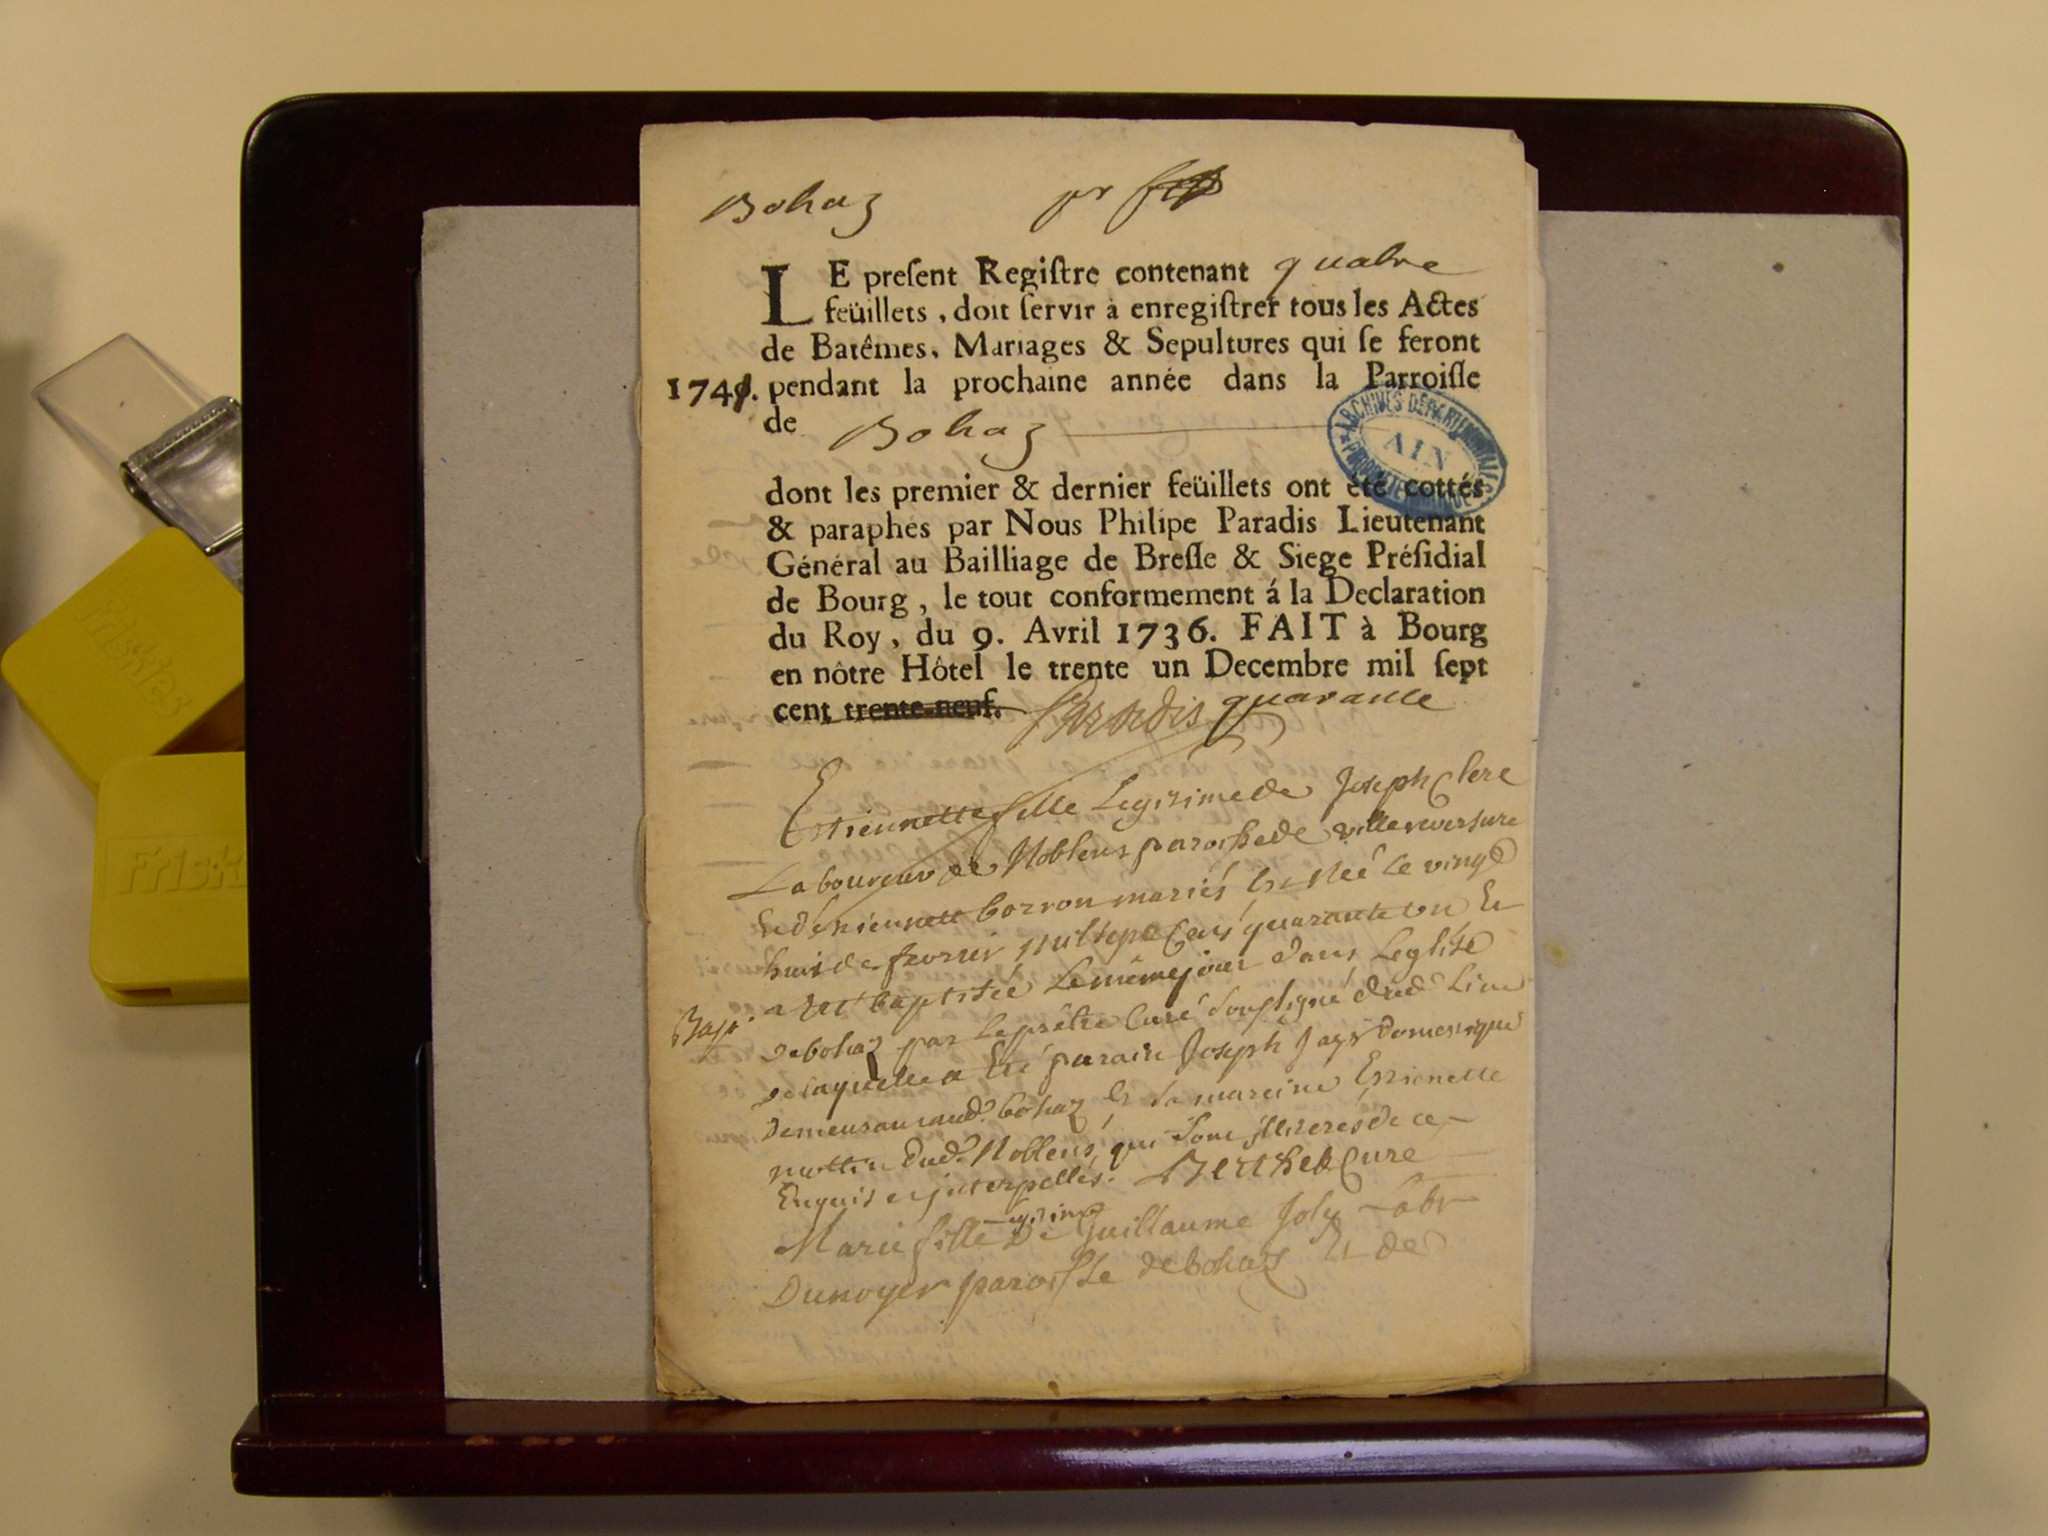 Bohaz pr
LE preſent Regiſtre contenant quatre
feüillets, doit ſervir à enregiſtrer tous les Actes
de Batêmes, Mariages & Sepultures qui ſe feront
1741. pendant la prochaine année dans la Parroiſſe
de Bohaz
ARCHIVES DÉPARTEMENTALES
AIN
dont les premier & dernier feüillets ont été cottés
& paraphés par Nous Philipe Paradis Lieutenant
Général au Bailliage de Breſſe & Siege Préſidial
de Bourg, le tout conformement á la Declaration
du Roy, du 9. Avril 1736. FAIT à Bourg
en nôtre Hôtel le trente un Decembre mil ſept
cent trente-neuf. Paradis quarante
Estiennette fille Legitime de Joseph Clerc
Laboureur de Noblens paroisse de villereversure
Et d'Etiennette borron mariés Est Neé Le vingt
huit de fevrier mil sept Cent quarante un Et
a Eté baptiseé Le même jour dans L'eglise
Bapt.
de bohaz par Le prêtre Curé Soussigné dud. Lieu
de laquelle a Eté parain Joseph Jayr domestique
Demeurant aud. bohaz Et Sa mareine Etienette
mottin dud. Noblens, qui Sont Illiterés de ce
Enquis et interpellés. Berthet Curé
Marie fille Legitime De Guillaume Joly Labr
Dunoyer paroisse de bohaz Et de
Friskies
Friski